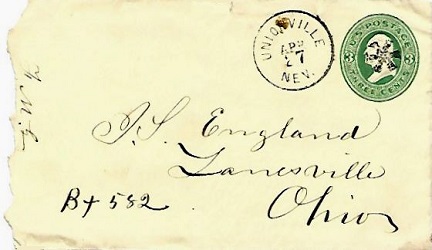 UNIONVILLE
APR
27
NEV.
U.S. POSTAGE
3 3
THREE CENTS
England
Zanesville
Ohio
Bx 582